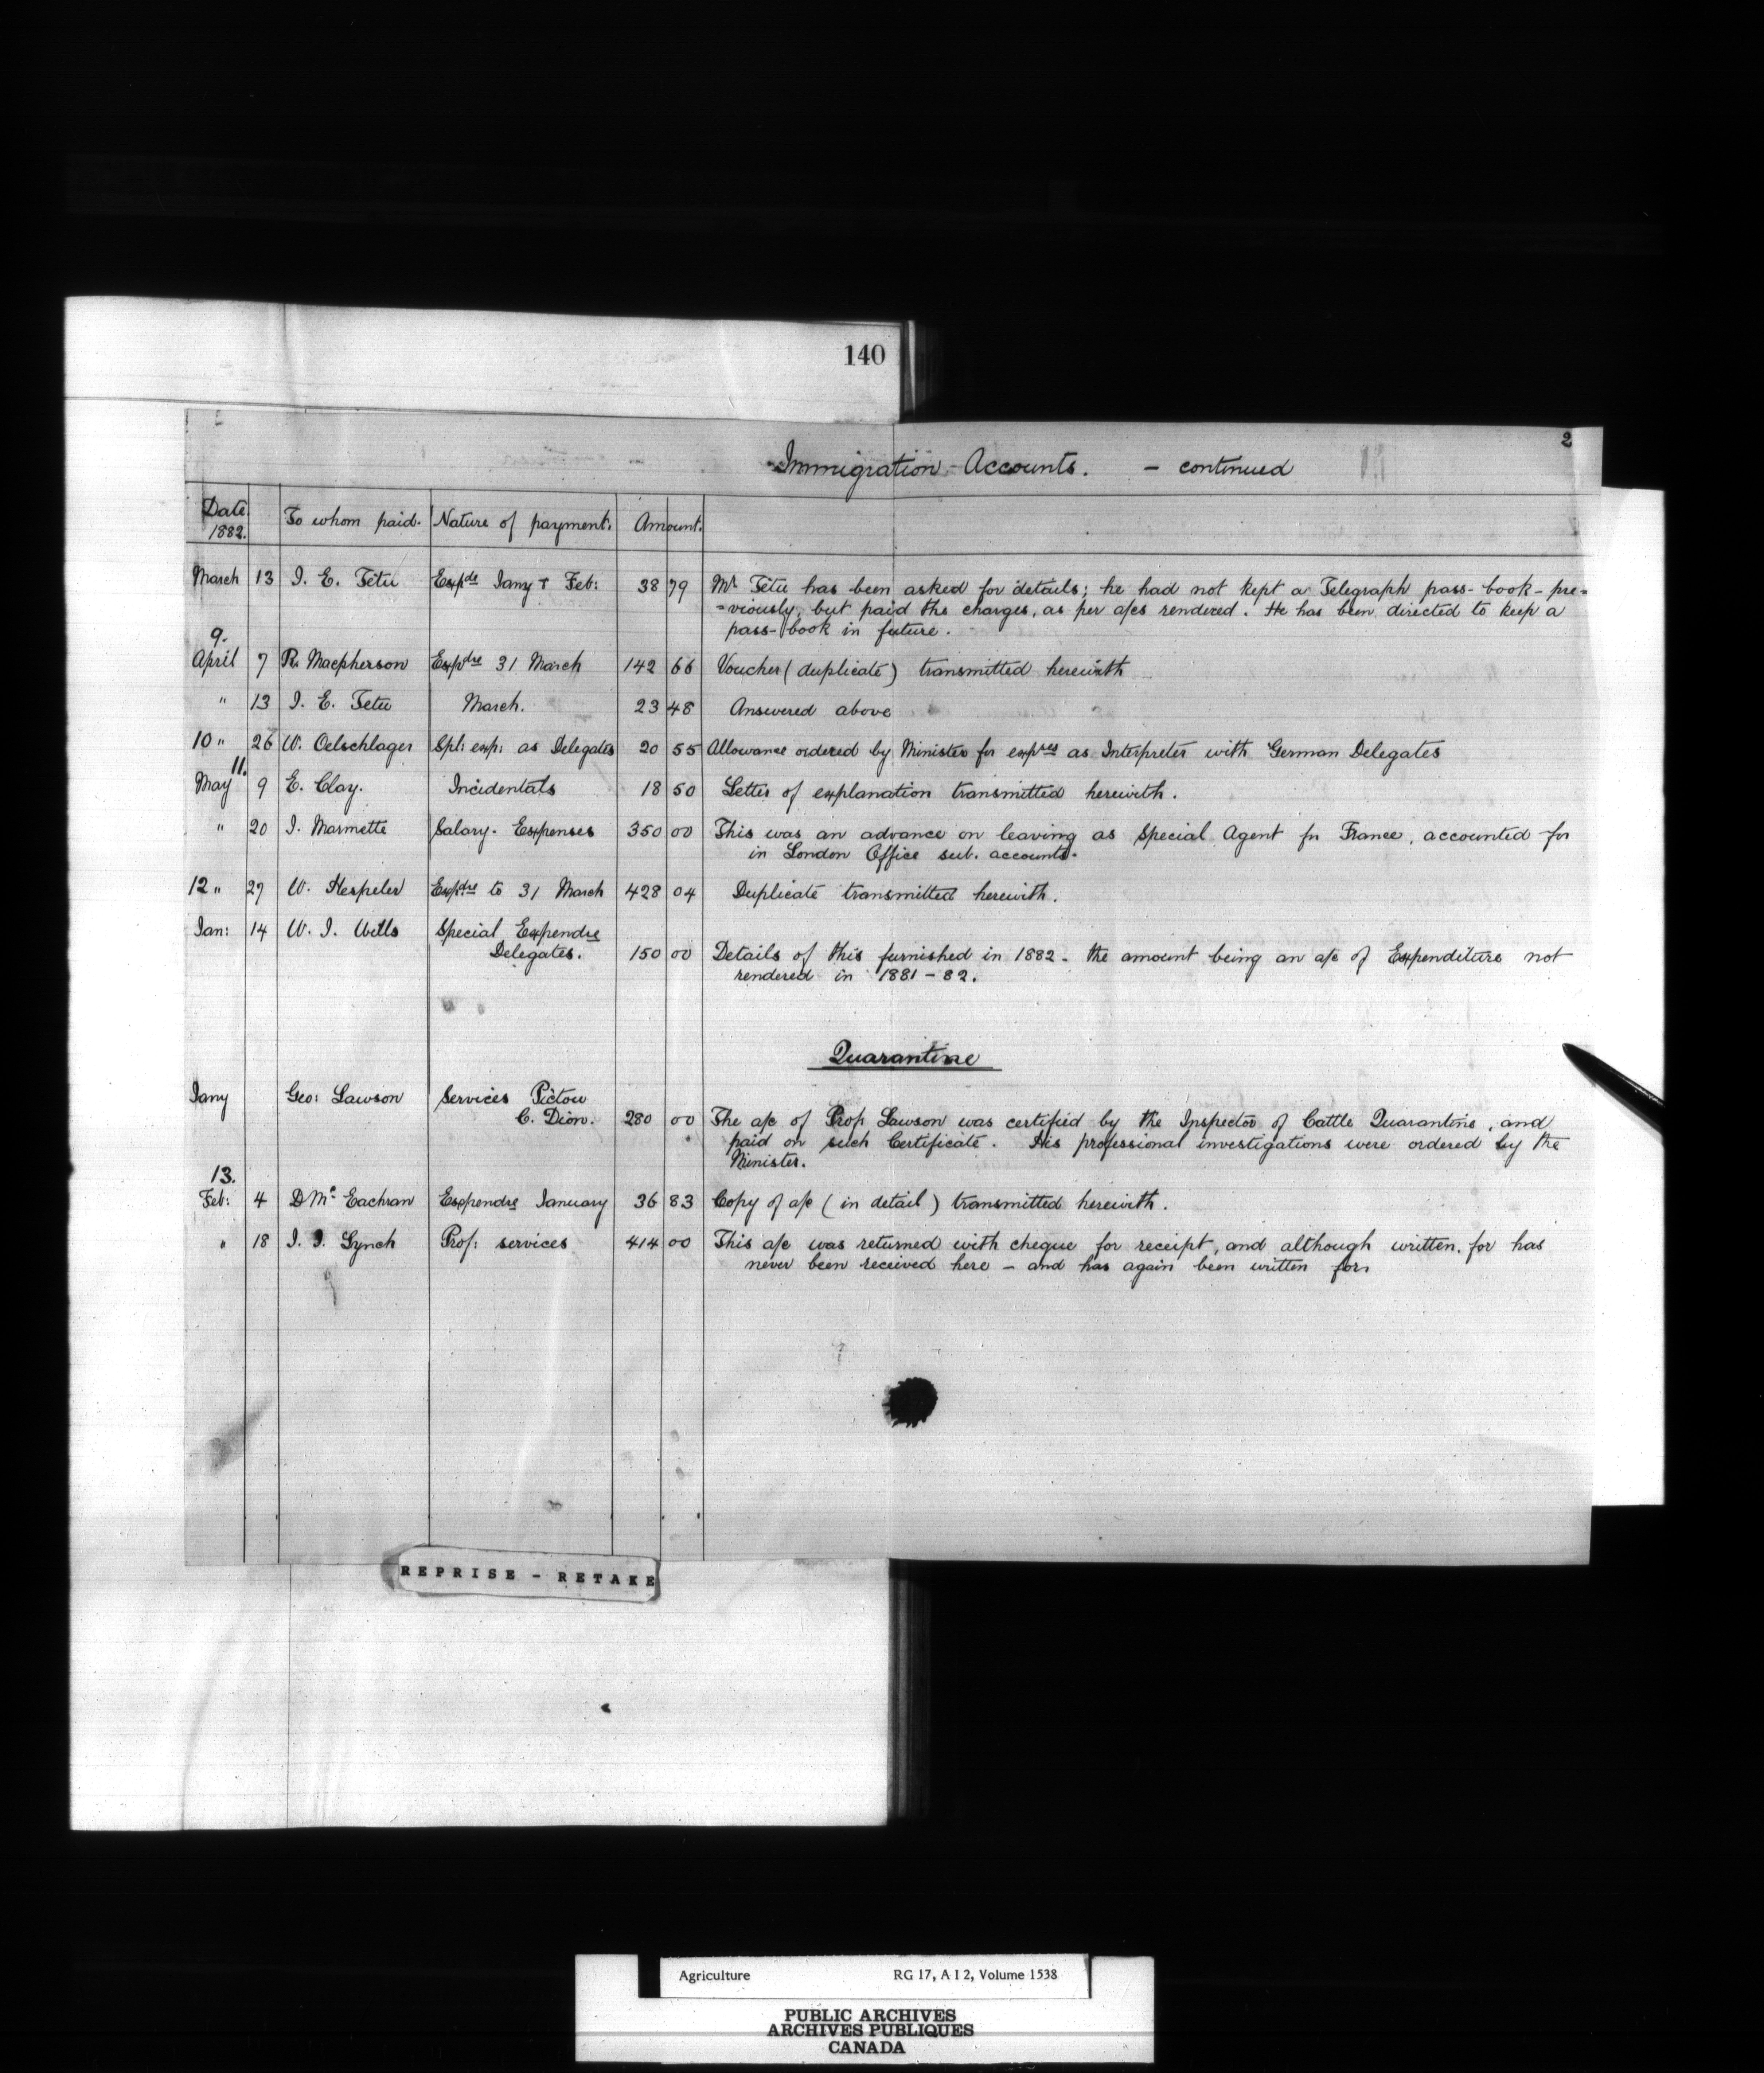 140
2
Immigration Accounts. - continued
Date 1882. To whom paid. Nature of payment. Amount.
March 13 J. E. Têtu Exp<sup>ds</sup> Jany & Feb: 38 79 Mr. Têtu has been asked for details; he had not kept a Telegraph pass-book - pre=
=viously, but paid the charges, as per a/cs rendered. He has been directed to keep a
pass-book in future.
9.
April 7 R. Macpherson Exp<sup>dre</sup> 31 March 142 66 Voucher (duplicate) transmitted herewith
" 13 J. E. Tetu March. 23 48 Answered above
10 " 26 W. Oelschlager Spl: exp: as Delegates 20 55 Allowance ordered by Minister for exp<sup>res</sup> as Interpreter with German Delegates
11.
May 9 E. Clay. Incidentals 18 50 Letter of explanation transmitted herewith.
" 20 J. Marmette Salary. Expenses 350 00 This was an advance on leaving as Special Agent for France, accounted for
in London Office sub. accounts.
12 " 27 W. Hespeler Exp<sup>dre</sup> to 31 March 428 04 Duplicate transmitted herewith.
Jan: 14 W. J. Wills Special Expendre
Delegates. 150 00 Details of this furnished in 1882 - the amount being an a/c of Expenditure not
rendered in 1881-82.
Quarantine
Jany Geo: Lawson Services Pictou
C. Dion. 280 00 The a/c of Prof. Lawson was certified by the Inspector of Cattle Quarantine, and
paid on such Certificate. His professional investigations were ordered by the
Minister.
13.
Feb: 4 D McEachran Expendre January 36 83 Copy of a/c (in detail) transmitted herewith.
" 18 J. J. Lynch Prof: services 414 00 This a/c was returned with cheque for receipt, and although written for has
never been received here - and has again been written for.
REPRISE - RETAKE
Agriculture RG 17, A I 2, Volume 1538
PUBLIC ARCHIVES
ARCHIVES PUBLIQUES
CANADA